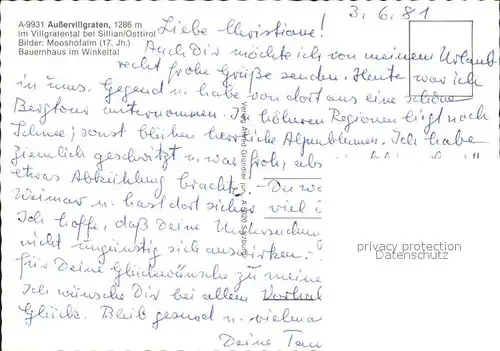 A-9931 Außervillgraten, 1286 m
im Villgratental bei Sillian/Osttirol
Bilder: Mooshofalm (17. Jh.)
Bauernhaus im Winkeltal
3. 6. 81
Liebe Christiane!
Auch Dir möchte ich von meinem Urlaub
recht frohe Grüße senden. Heute war ich
in uns. Gegend u. habe von dort aus eine schöne
Bergtour unternommen. In höheren Regionen liegt noch
Schnee; sonst blühen herrliche Alpenblumen. Ich habe
ziemlich geschwitzt u. war froh, als
etwas Abkühlung brachte. - Du
Weimar u. hast dort sicher viel
Ich hoffe, daß Deine Untersuchung
nicht ungünstig sich auswirken.
für Deine Glückwünsche zu meine
Ich wünsche Dir bei allem Vorhab
Glück. Bleib gesund u. vielmal
Deine Tan
privacy protection
Datenschutz